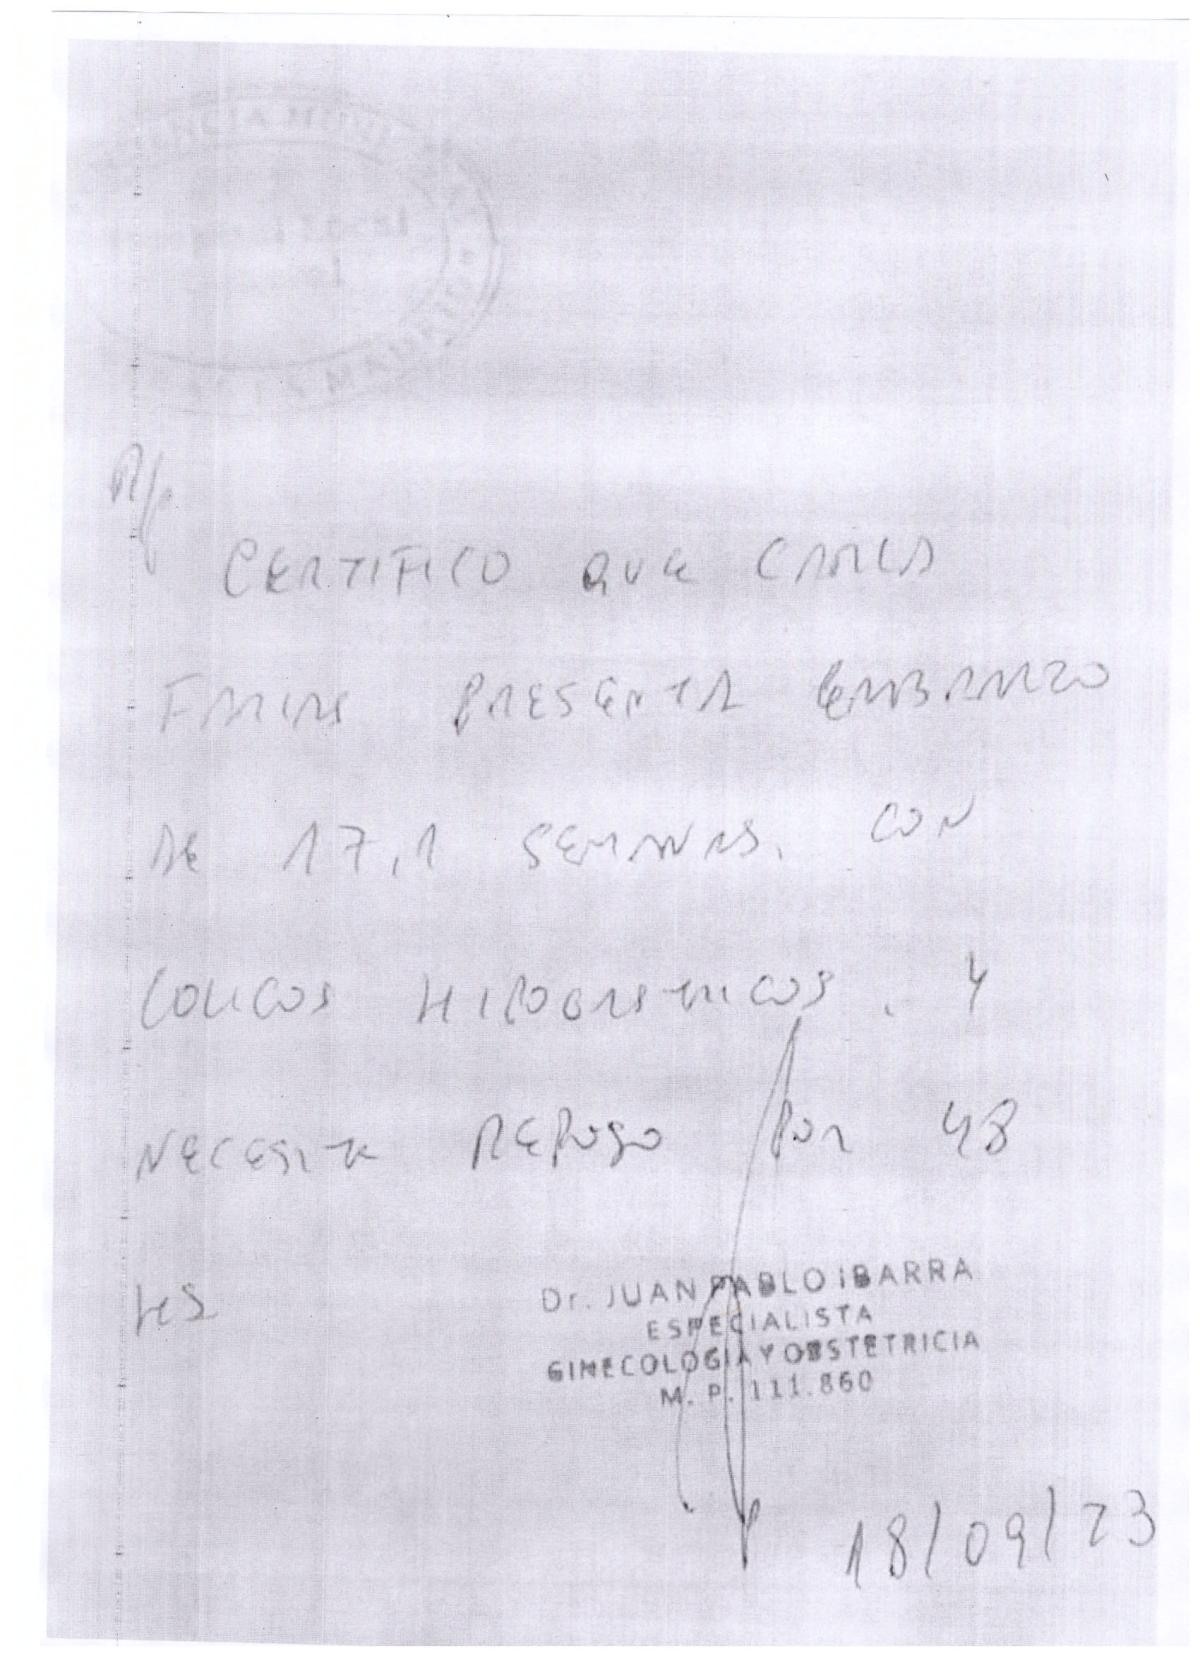 R/p
CERTIFICO QUE CARLA
FARIAS PRESENTA EMBARAZO
DE 17,1 SEMANAS. CON
COLICOS HIPOGASTRICOS. Y
NECESITA REPOSO POR 48
HS
Dr. JUAN PABLO IBARRA
ESPECIALISTA
GINECOLOGIA Y OBSTETRICIA
M. P. 111.860
18/09/23